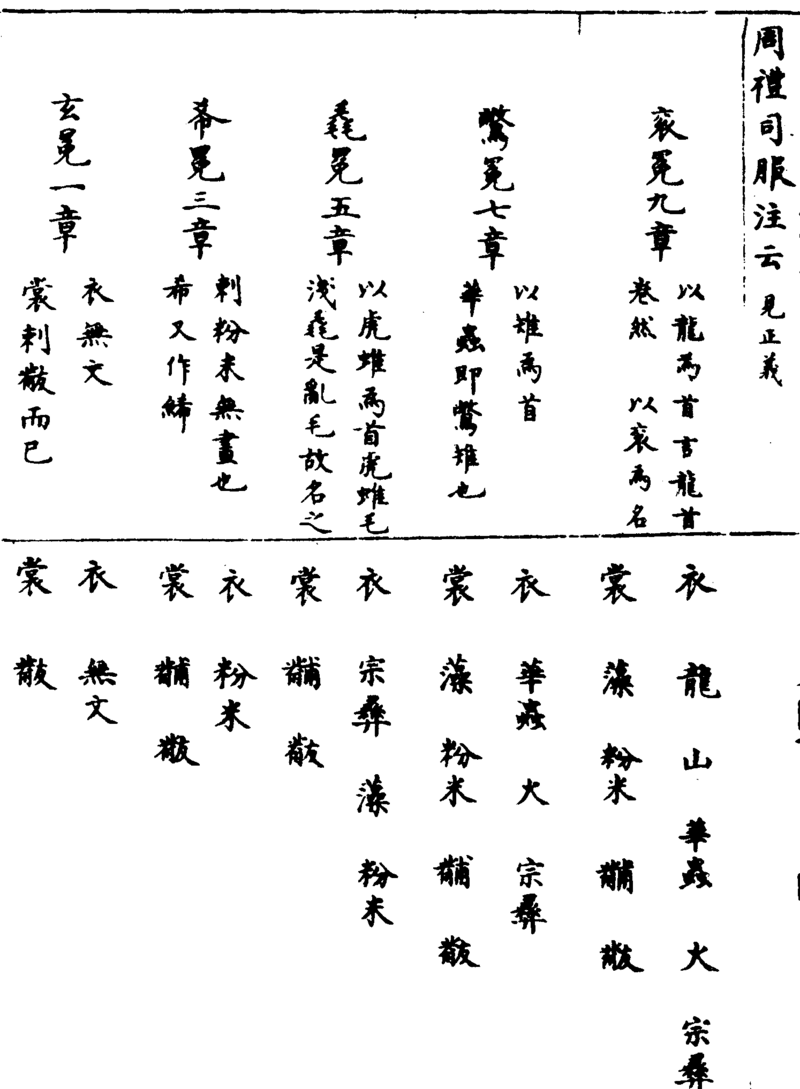 周禮司服注云 見正義
衮冕九章
以龍為首言龍首
卷然 以衮為名
鷩冕七章
以雉為首
華蟲即鷩雉也
毳冕五章
以虎蜼為首虎蜼毛
淺毳是亂毛故名之
希冕三章
刺粉米無畫也
希又作絺
玄冕一章
衣無文
裳刺黻而已
衣 龍 山 華蟲 火 宗彝
裳 藻 粉米 黼 黻
衣 華蟲 火 宗彝
裳 藻 粉米 黼 黻
衣 宗彝 藻 粉米
裳 黼 黻
衣 粉米
裳 黼 黻
衣 無文
裳 黻